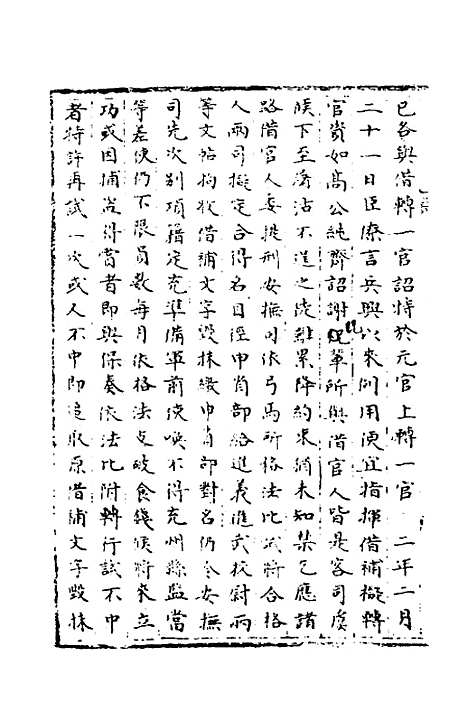 已各與借轉一官詔特於元官上轉一官 二年二月
二十一日臣僚言兵興以來例用便宜指揮借補擬轉
官資如高公純齊詔謝貺輩所與借官人皆是客司虞
候下至屠沽不逞之徒雖累降約束猶未知禁乞應諸
路借官人委提刑安撫司依弓馬所格法比試將合格
人兩司擬定合得名目徑申省部給進義進武校尉兩
等文帖拘收借補文字毀抹繳申省部對名仍令安撫
司先次別項籍定充準備軍前使喚不得充州縣監當
等差使仍不限員數每月依格法支破食錢候將來立
功或因捕盜得當者即與保奏依法比附轉行試不中
者特許再試一次或人不中即追取原借補文字毀抹